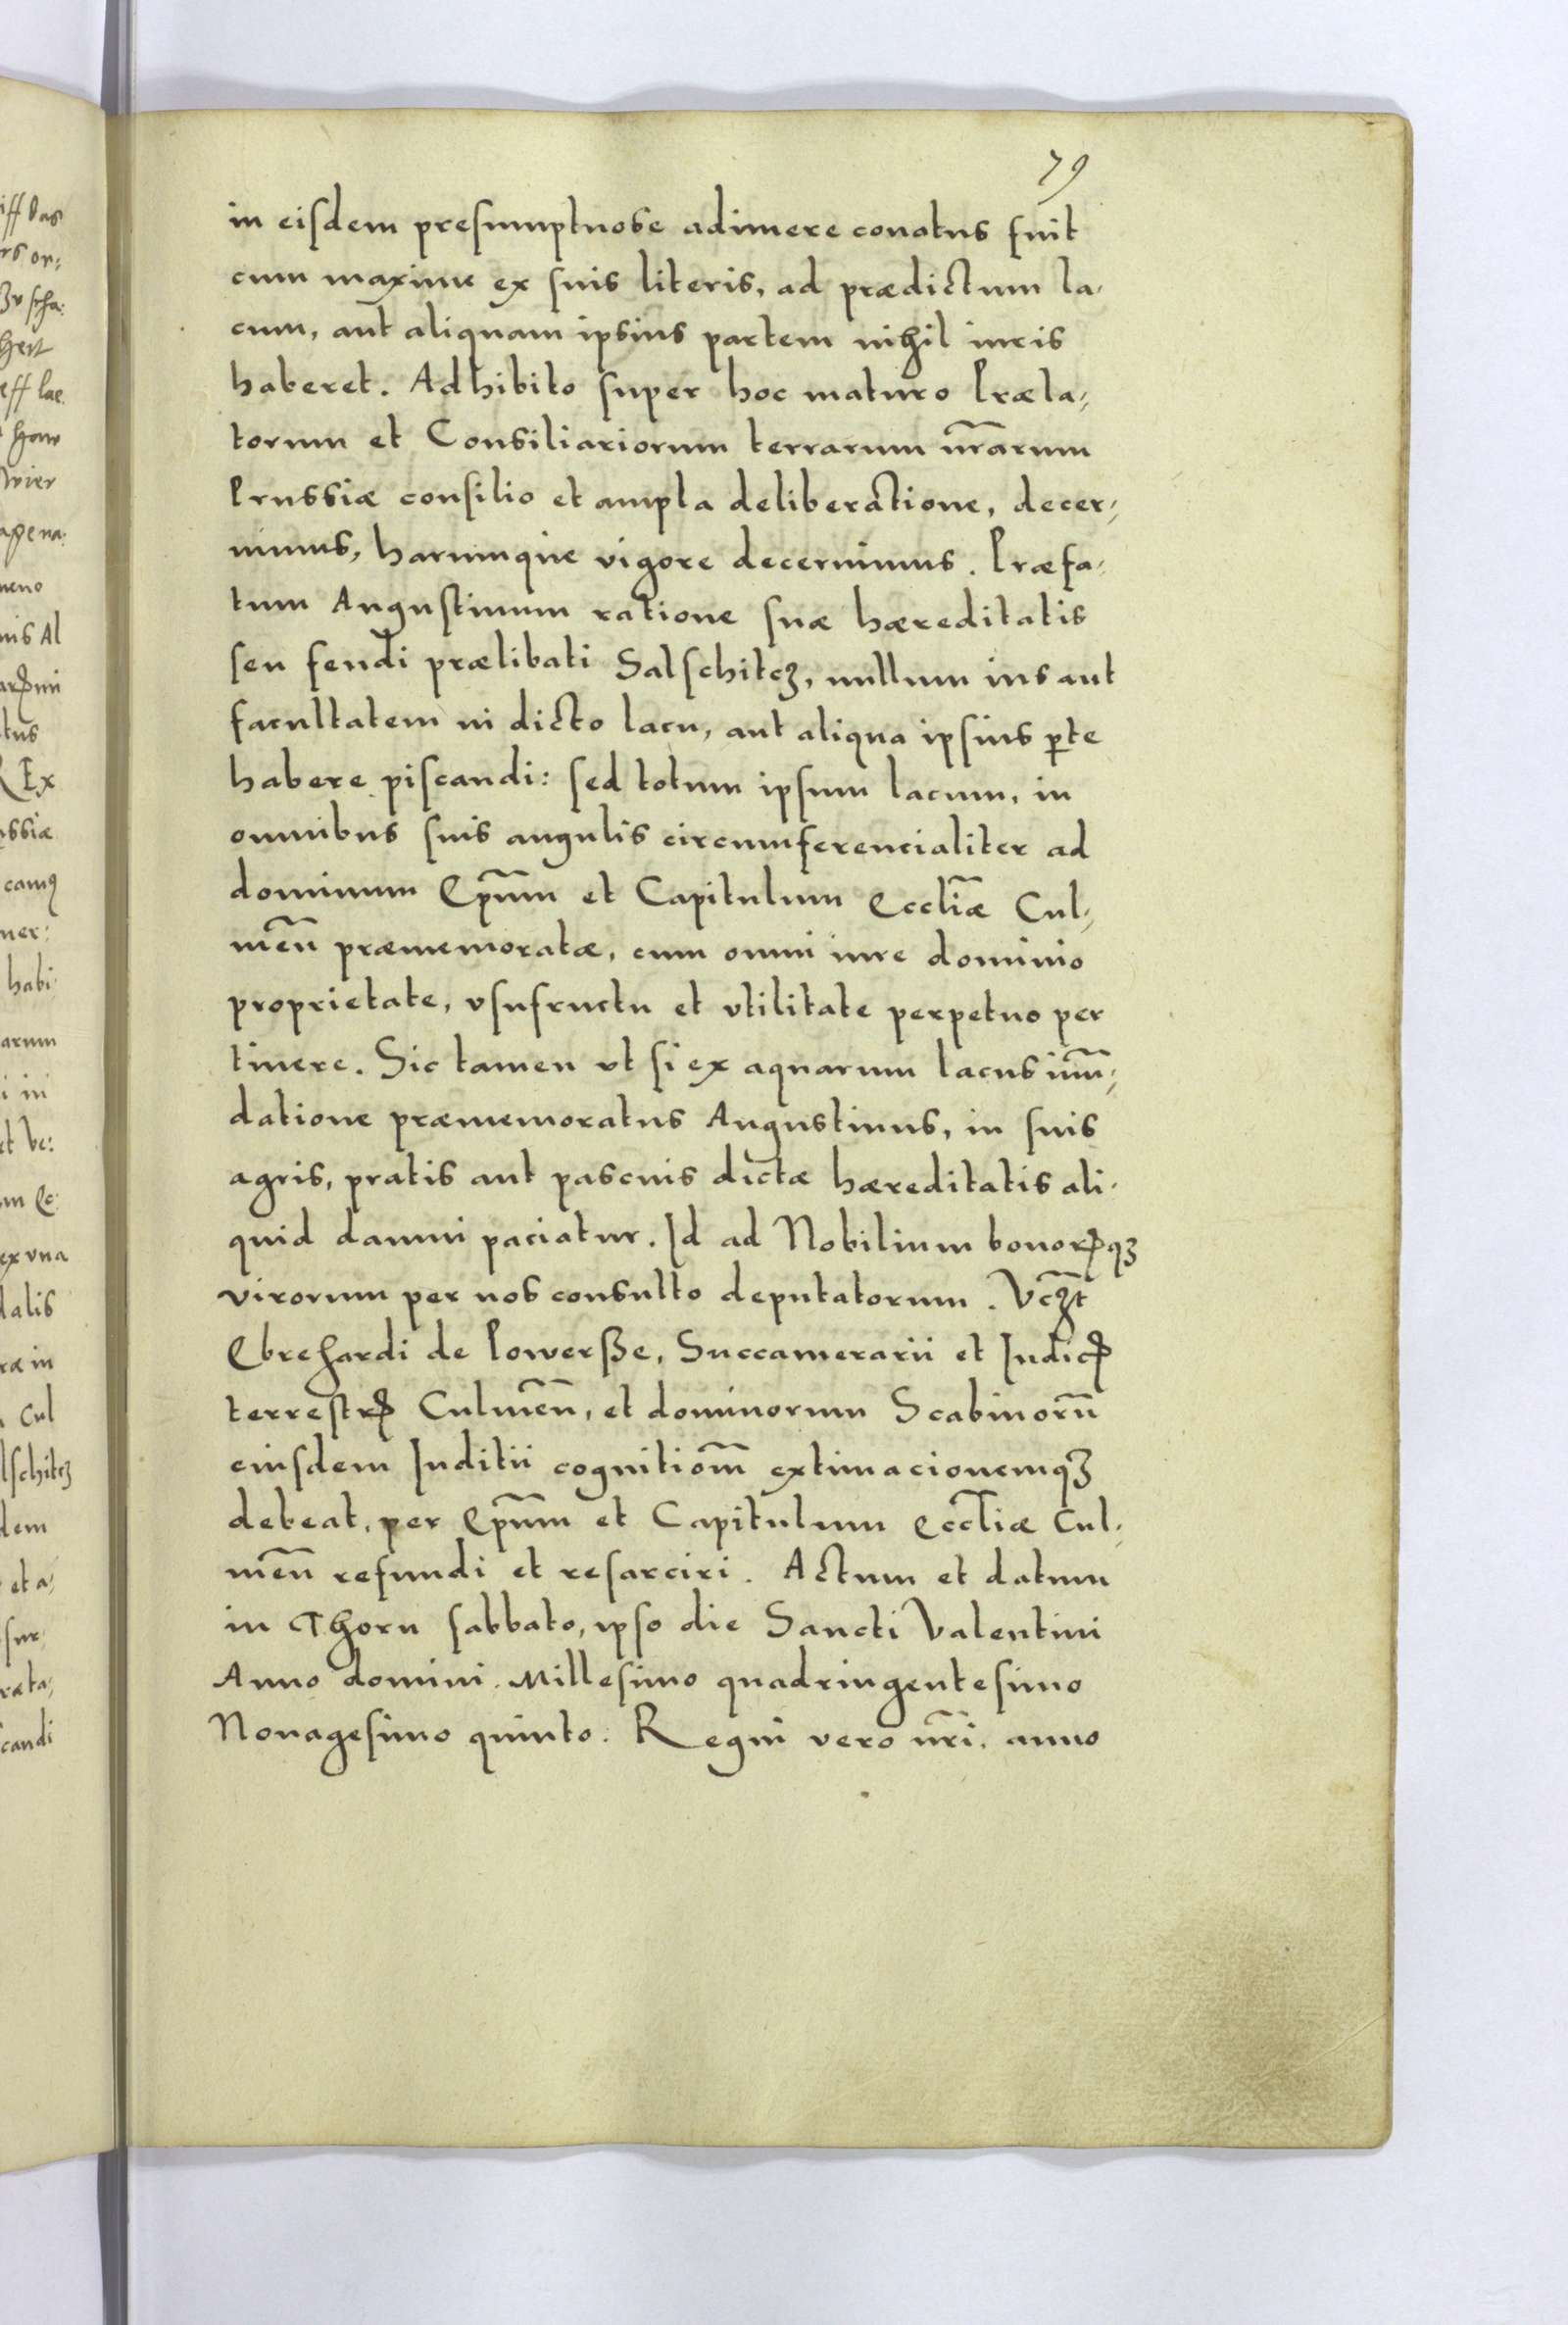 79
in eisdem presumptuose adimere conatus fuit
cum maxime ex suis literis, ad prædictum la-
cum, aut aliquam ipsius partem nihil iuris
haberet. Adhibito super hoc maturo Præla-
torum et Consiliariorum terrarum nr̃arum
Prussiæ consilio et ampla deliberatione, decer-
nimus, harumque vigore decernimus. Præfa-
tum Augustinum ratione suæ hæreditatis
seu feudi prælibati Salschitcz, nullum ius aut
facultatem in dicto lacu, aut aliqua ipsius ꝑte
habere piscandi: sed totum ipsum lacum, in
omnibus suis angulis circumferencialiter ad
dominum Ep̃um et Capitulum Eccliæ̃ Cul-
meñ præmemoratæ, cum omni iure dominio
proprietate, vsufructu et vtilitate perpetuo per
tinere. Sic tamen vt si ex aquarum lacus inũ-
datione præmemoratus Augustinus, in suis
agris, pratis aut pascuis dictæ hæreditatis ali-
quid damni paciatur. Id ad Nobilium bonorꝑqꝫ
virorum per nos consulto deputatorum. Vcꝫt̃
Ebrehardi de Powerße, Succamerarii et Iudicꝭ
terrestrꝭ Culmeñ, et dominorum Scabinorũ
eiusdem Iuditii cognitiom̃ extimacionemqꝫ
debeat, per Ep̃um et Capitulum Eccl̃iæ Cul-
meñ refundi et resarciri. Actum et datum
in Thorn sabbato, ipso die Sancti Valentini
Anno domini. Millesimo quadringentesimo
Nonagesimo quinto. Regni vero nr̃i. anno